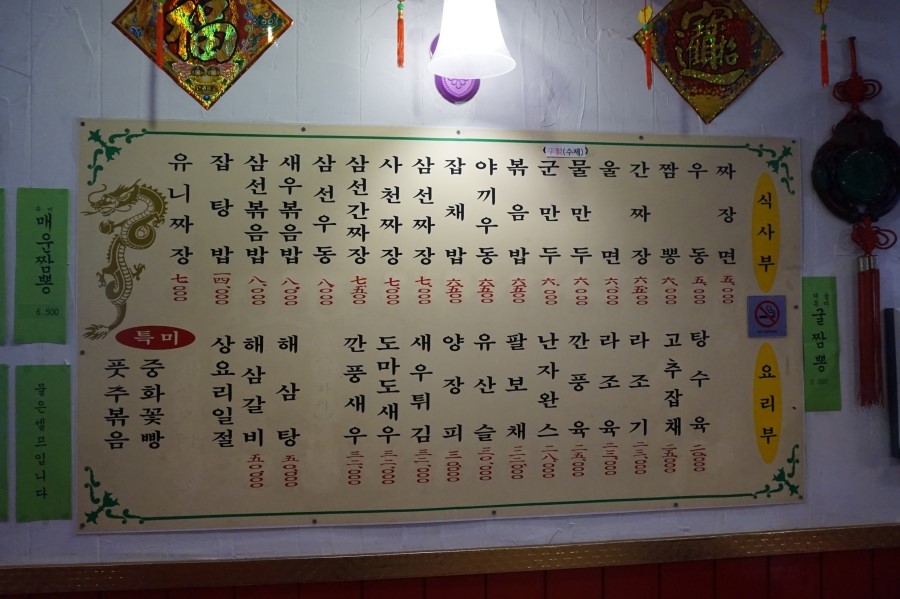 福
招財進寶
식사부
짜장면 五,000
우동 五,000
짬뽕 六,000
간짜장 六五00
울면 六,000
물만두 六,000
(수제)
군만두 六,000
볶음밥 六五00
야끼우동 六五00
잡채밥 六五00
삼선짜장 七,000
사천짜장 七,000
삼선간짜장 七五00
삼선우동 八,000
새우볶음밥 八,000
삼선볶음밥 八,000
잡탕밥 一四,000
유니짜장 七,000
요리부
탕수육 二0,000
고추잡채 二五,000
라조기 二三,000
라조육 二三,000
깐풍육 二五,000
난자완스 二八,000
팔보채 三二,000
유산슬 三0,000
양장피 三0,000
새우튀김 三二,000
도마도새우 三二,000
깐풍새우 三二,000
해삼탕 五0,000
해삼갈비 五0,000
상요리일절
특미
중화꽃빵
풋추볶음
매운짬뽕
6,500
물은셀프입니다
굴짬뽕